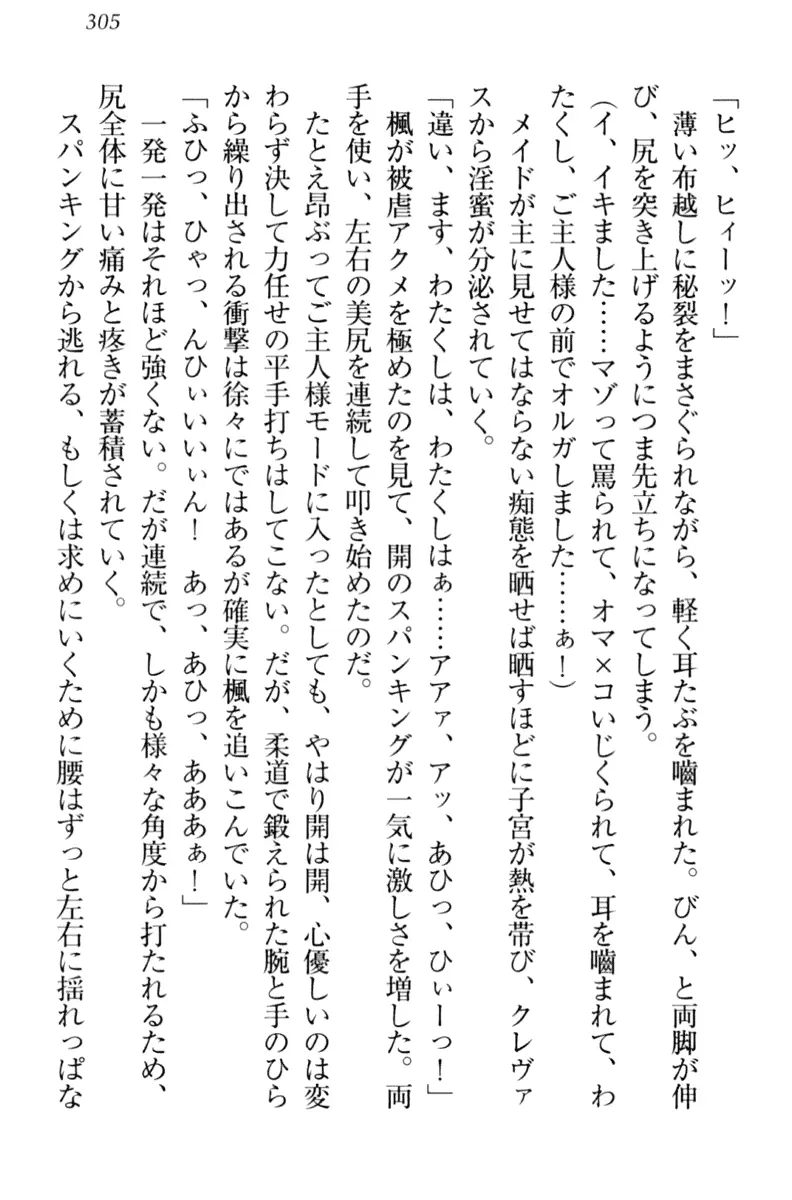 305
「ヒッ、ヒィーッ！」
　薄い布越しに秘裂をまさぐられながら、軽く耳たぶを嚙まれた。びん、と両脚が伸
び、尻を突き上げるようにつま先立ちになってしまう。
（イ、イキました……マゾって罵られて、オマ×コいじくられて、耳を嚙まれて、わ
たくし、ご主人様の前でオルガしました……ぁ！）
　メイドが主に見せてはならない痴態を晒せば晒すほどに子宮が熱を帯び、クレヴァ
スから淫蜜が分泌されていく。
「違い、ます、わたくしは、わたくしはぁ……アアァ、アッ、あひっ、ひぃーっ！」
　楓が被虐アクメを極めたのを見て、開のスパンキングが一気に激しさを増した。両
手を使い、左右の美尻を連続して叩き始めたのだ。
　たとえ昂ぶってご主人様モードに入ったとしても、やはり開は開、心優しいのは変
わらず決して力任せの平手打ちはしてこない。だが、柔道で鍛えられた腕と手のひら
から繰り出される衝撃は徐々にではあるが確実に楓を追いこんでいた。
「ふひっ、ひゃっ、んひぃいいぃん！　あっ、あひっ、あああぁ！」
　一発一発はそれほど強くない。だが連続で、しかも様々な角度から打たれるため、
尻全体に甘い痛みと疼きが蓄積されていく。
　スパンキングから逃れる、もしくは求めにいくために腰はずっと左右に揺れっぱな